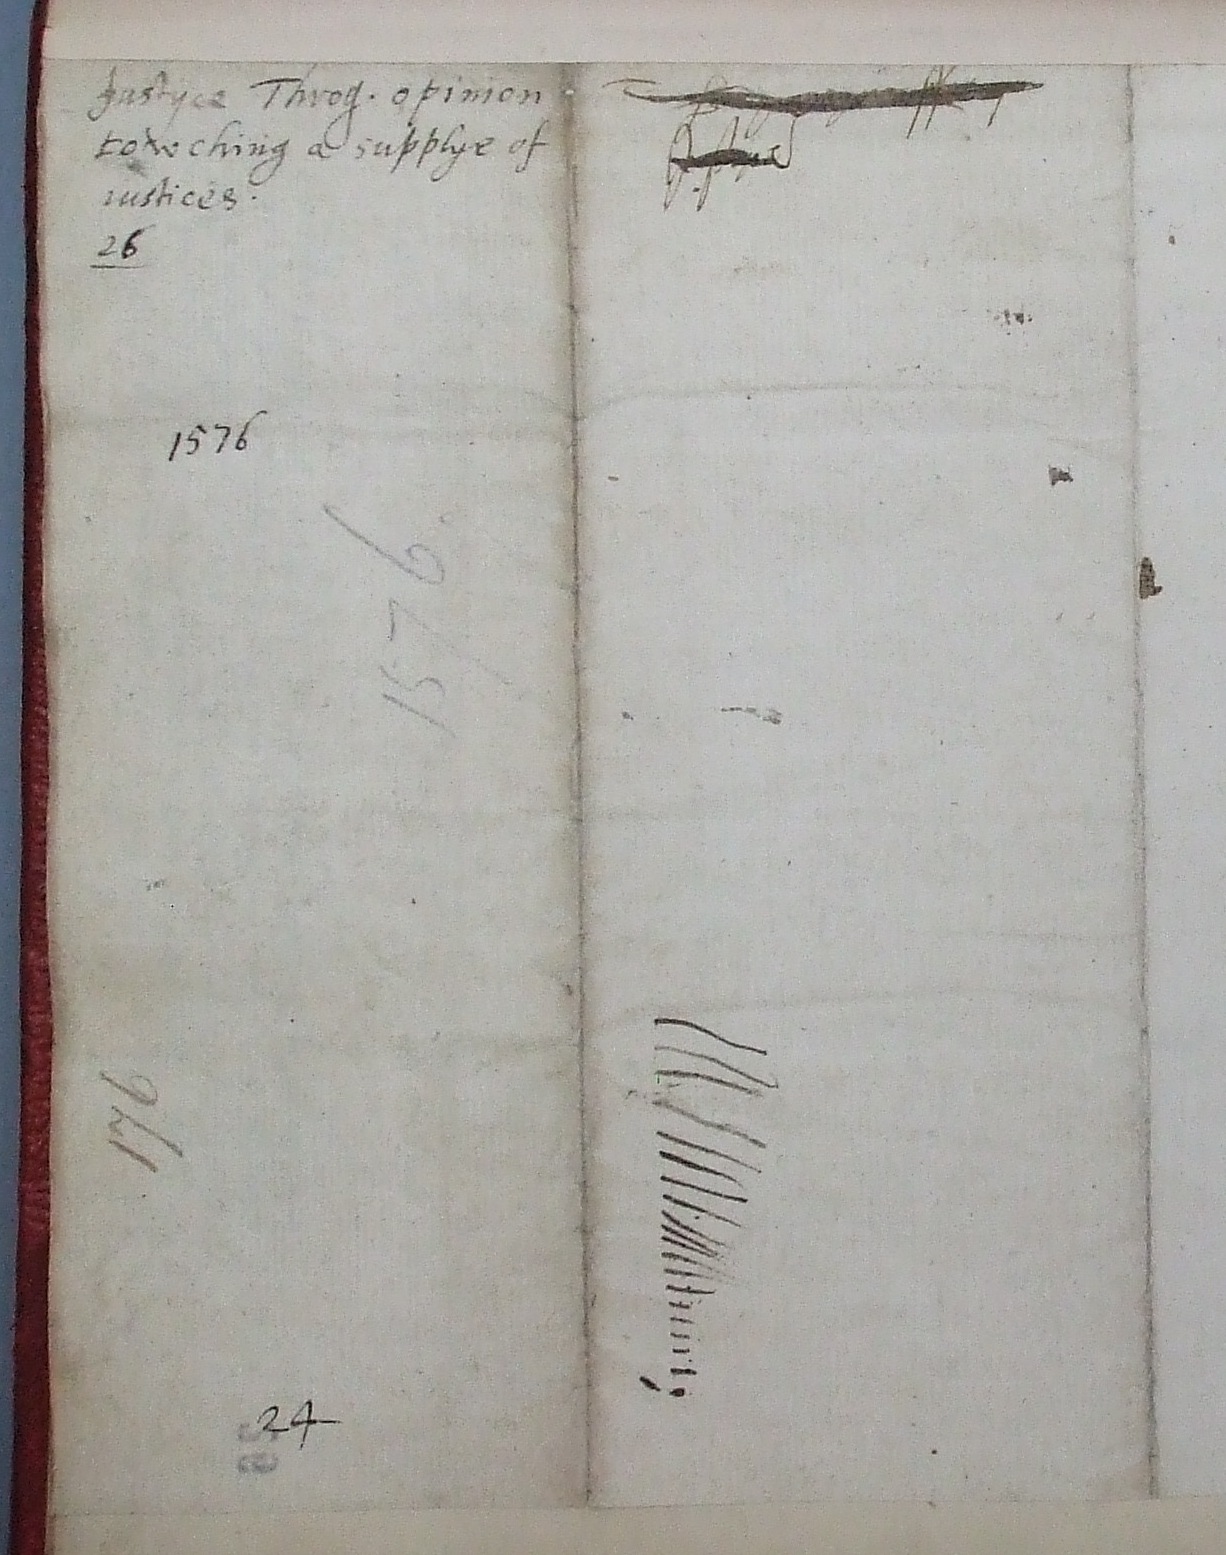 Justyce Throg. opinion
toweching a supplye of
iustices.
26
1576
1576
24